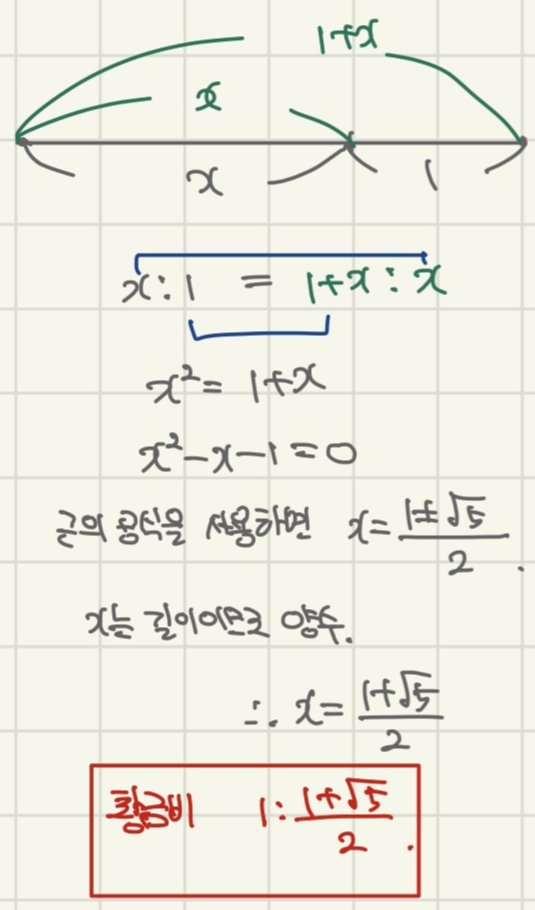 1+x
x
x 1
x : 1 = 1+x : x
x² = 1+x
x²-x-1=0
근의 공식을 사용하면 x = (1±√5)/2 .
x는 길이이므로 양수.
∴ x = (1+√5)/2
황금비 1 : (1+√5)/2 .